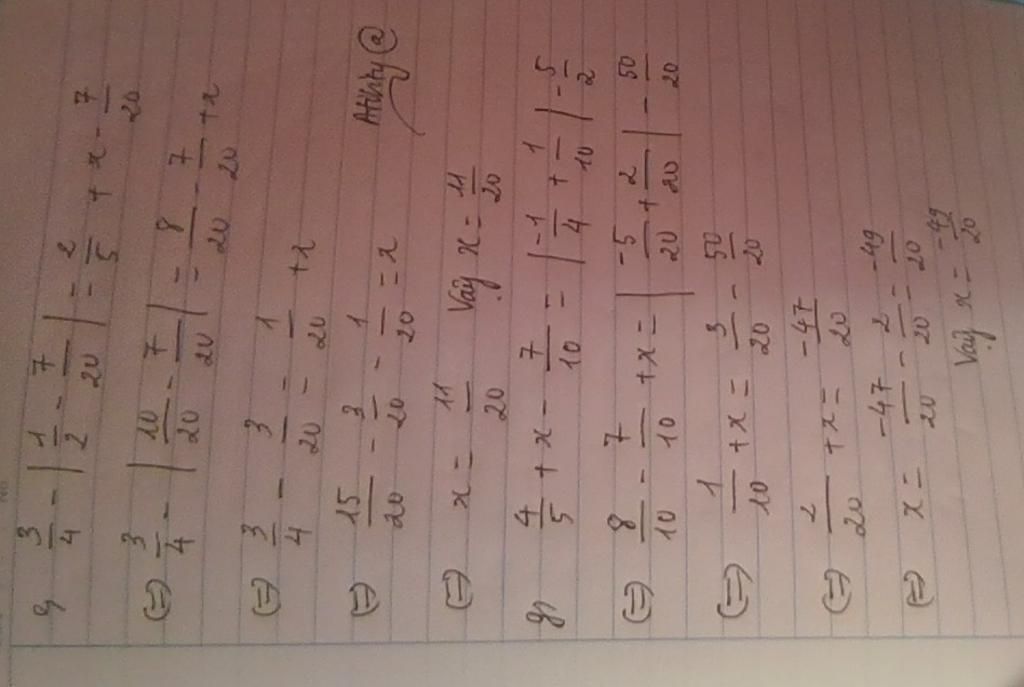 3/4 - | 1/2 - 7/20 | = 2/5 + x - 7/20
(=) 3/4 - | 10/20 - 7/20 | = 8/20 - 7/20 + x
(=) 3/4 - 3/20 = 1/20 + x
(=) 15/20 - 3/20 - 1/20 = x
(=) x = 11/20 Vậy x = 11/20
g, 4/5 + x - 7/10 = | -1/4 + 1/10 | - 5/2
(=) 8/10 - 7/10 + x = | -5/20 + 2/20 | - 50/20
(=) 1/10 + x = 3/20 - 50/20
(=) 2/20 + x = -47/20
(=) x = -47/20 - 2/20 = -49/20
Vậy x = -49/20